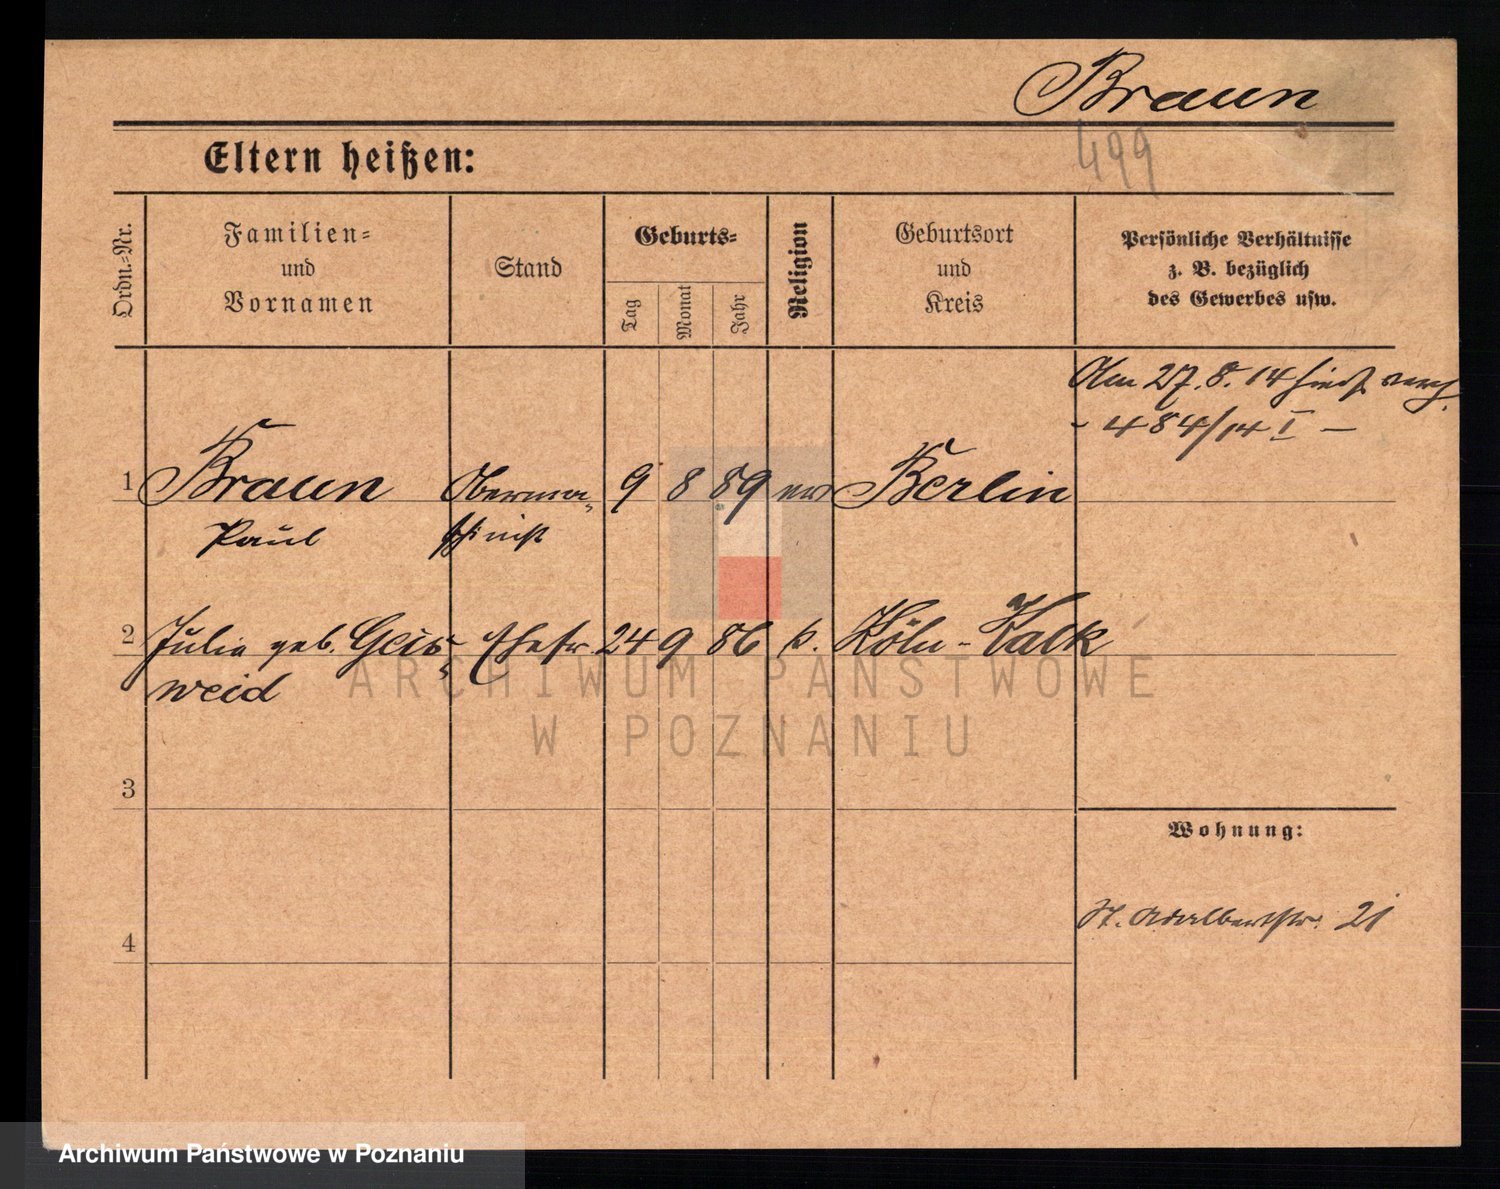 Braun
499
Eltern heißen:
Ordn.-Nr.
Familien-
und
Vornamen
Stand
Geburts-
Tag
Monat
Jahr
Religion
Geburtsort
und
Kreis
Persönliche Verhältnisse
z. B. bezüglich
des Gewerbes usw.
Am 27. 8. 14 hies.
- 484/14 I -
1 Braun Oberma- 9 8 89 ev Berlin
Paul schinist
2 Julie geb. Geis- Ehefr. 24 9 86 k. Köln-Kalk
weid
3
Wohnung:
St. Adalbertstr. 21
4
ARCHIWUM PAŃSTWOWE
W POZNANIU
Archiwum Państwowe w Poznaniu